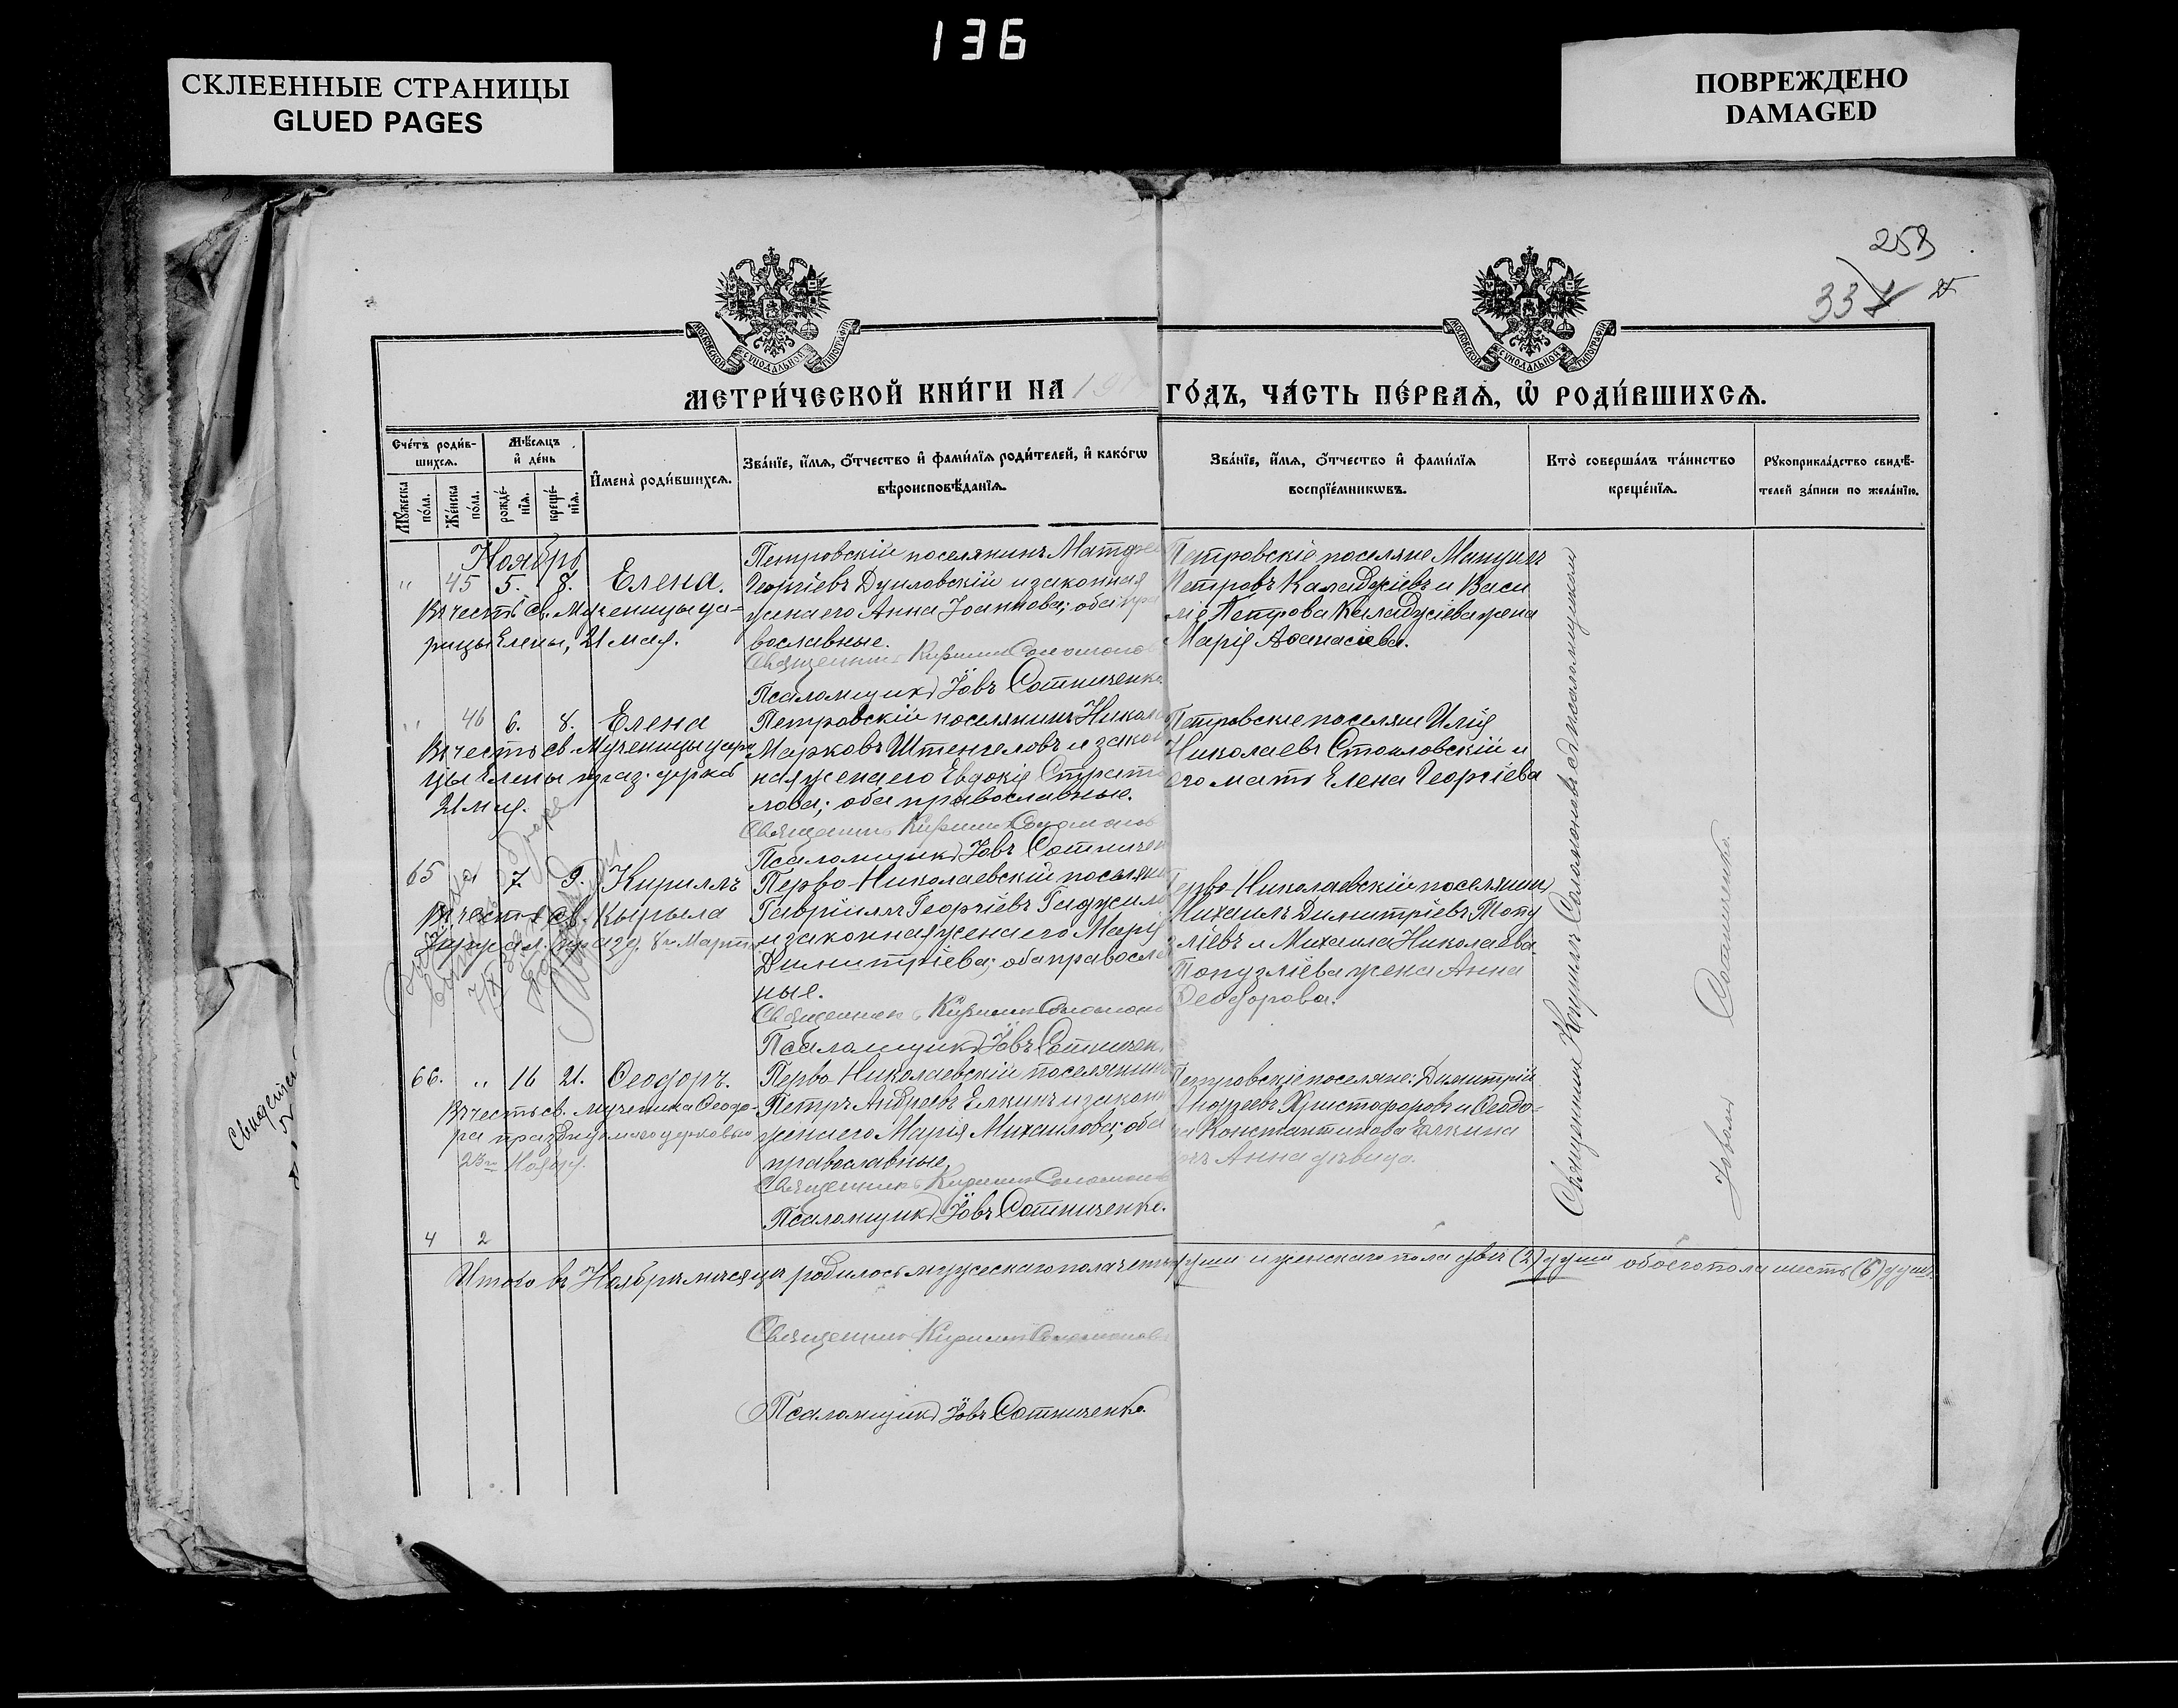 136
СКЛЕЕННЫЕ СТРАНИЦЫ
GLUED PAGES
ПОВРЕЖДЕНО
DAMAGED
258
331
МОСКОВСКОЙ СѴНОДАЛЬНОЙ ТИПОГРАФІИ
МОСКОВСКОЙ СѴНОДАЛЬНОЙ ТИПОГРАФІИ
МЕТРИ́ЧЕСКОЙ КНИ́ГИ НА 19
ГО́ДЪ, ЧА́СТЬ ПЕ́РВАѦ, Ѡ҆ РОДИ́ВШИХСѦ.
Сче́тъ роди́в-
шихсѧ.
Мꙋ́жеска по́ла.
Же́нска по́ла.
Мѣ́сѧцъ
и҆ де́нь
рожде́-
нїѧ.
креще́-
нїѧ.
И҆мена̀ роди́вшихсѧ.
Зва́нїе, и҆́мѧ, о҆́тчество и҆ фами́лїѧ роди́телей, и҆ како́гѡ
вѣроисповѣ́данїѧ.
Зва́нїе, и҆́мѧ, о҆́тчество и҆ фами́лїѧ
воспрїе́мникѡвъ.
Кто̀ соверша́лъ та́инство
креще́нїѧ.
Рꙋкоприкла́дство свидѣ́-
телей за́писи по жела́нїю.
Ноябрь
" 45 5. 8. Елена.
Въ честь св. Мученицы ца-
рицы Елены, 21 мая.
Петровскій поселянинъ Матфе
Георгіевъ Дуиловскій и законная
жена его Анна Іоаннова; оба пра
вославные.
Священникъ Кириллъ Соломонов
Псаломщикъ Іовъ Сотниченко.
Петровскіе поселяне Мануилъ
Петровъ Каладжіевъ и Васи
лія Петрова Каладжіева жена
Марія Аѳанасіева.
" 46 6. 8. Елена
Въ честь св. Мученицы цари
цы Елены праз. церков
21 мая.
Петровскій поселянинъ Никола
Марковъ Штенгеловъ и закон
ная жена его Евдокія Страти
лова; оба православные.
Священникъ Кириллъ Соломонов
Псаломщикъ Іовъ Сотничен
Петровскіе поселяне Илія
Николаевъ Стоиловскій и
его мать Елена Георгіева
65 " 7. 9. Кириллъ
Въ честь св. Кирила
празд. 8го Марта
Перво-Николаевскій поселяни
Гавріилъ Георгіевъ Гаджило
и законная жена его Марія
Димитріева; оба правосла
ные.
Священникъ Кириллъ Соломонов
Псаломщикъ Іовъ Сотничен
Перво-Николаевскій поселянинъ
Михаилъ Димитріевъ Топу
зліевъ и Михаила Николаева
Топузліева жена Анна
Ѳеодорова.
66. " 16 21. Ѳеодоръ.
Въ честь св. мученика Ѳеодо-
ра празднуемаго церковью
23го Ноября.
Перво-Николаевскій поселянинъ
Петръ Андреевъ Елкинъ и законн
жена его Марія Михаилова; оба
православные
Священникъ Кириллъ Соломонов
Псаломщикъ Іовъ Сотниченко.
Петровскіе поселяне: Димитрій
Андреевъ Христофоровъ и Ѳеодо-
ра Константинова Елкина
дочь Анна дѣвица.
Священникъ Кириллъ Соломоновъ съ псаломщикомъ
Іовомъ Сотниченко.
4 2
Итого въ Ноябрѣ мѣсяцѣ родилось мужескаго пола четы
души и женскаго пола двѣ (2) души обоего пола шесть (6) душъ.
Священникъ Кириллъ Соломоновъ
Псаломщикъ Іовъ Сотниченко.